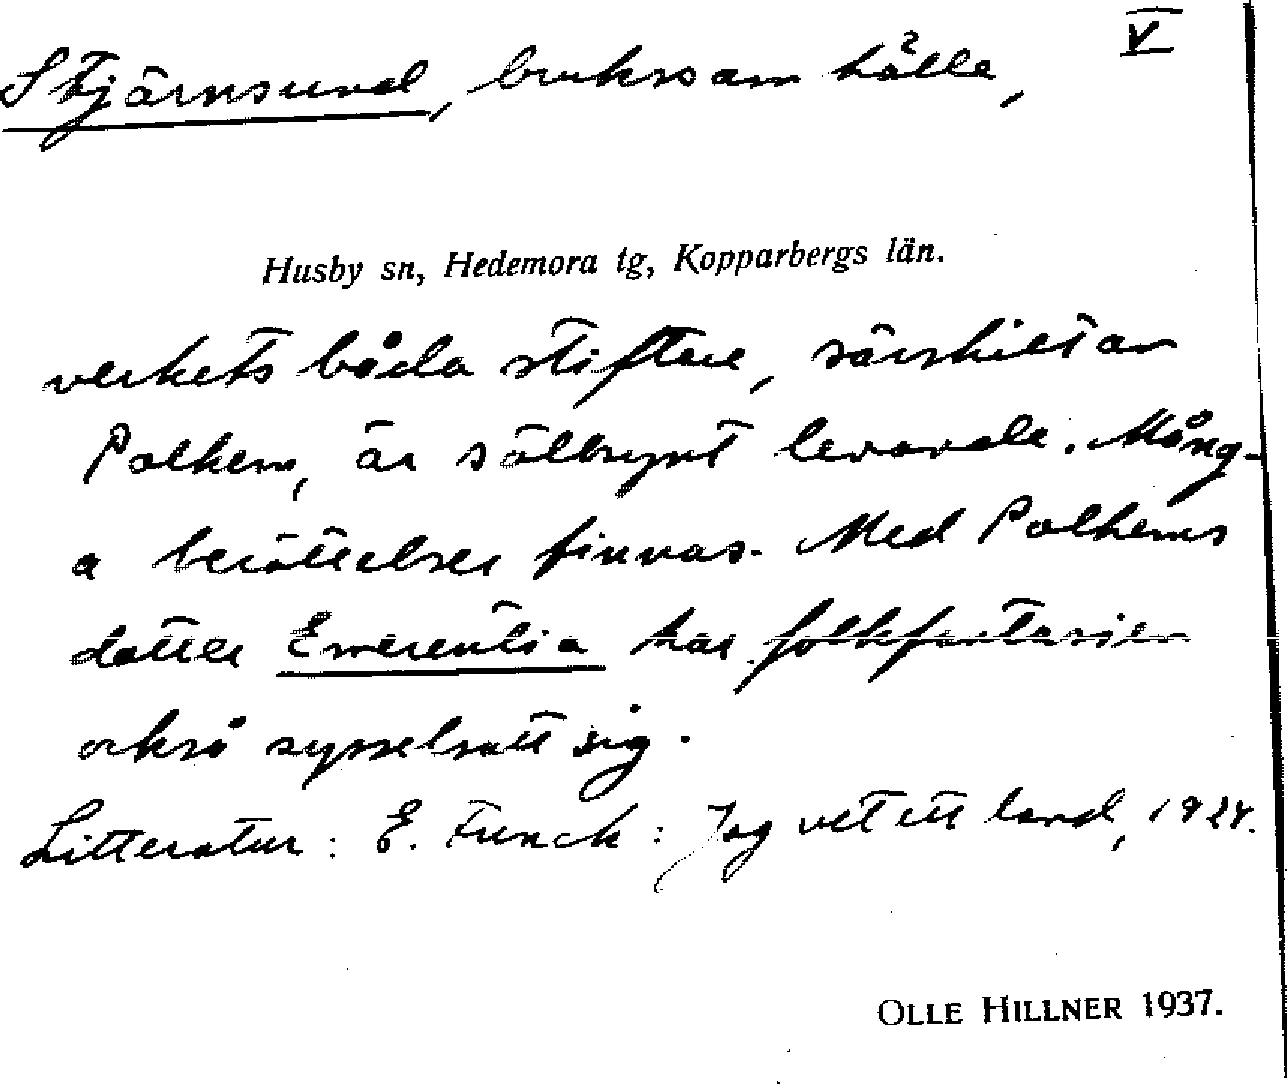 V
Stjärnsund, brukssamhälle,
Husby sn, Hedemora tg, Kopparbergs län.
verkets båda stiftare, särskilt av
Polhem, är sällsynt levande. Mång-
a berättelser finnas. Med Polhems
dotter Emerentia har folkfantasien
också sysselsatt sig.
Litteratur: E. Funck: Jag vet ett land, 1924.
OLLE HILLNER 1937.